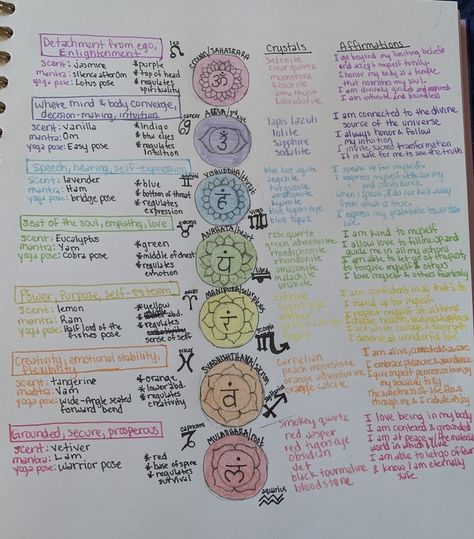 Crystals
Affirmations
Detachment from ego,
Enlightenment
scent: jasmine
mantra: silence after Om
yoga pose: Lotus pose
*purple
*top of head
*regulates
spirituality
CROWN/SAHASRARA
ॐ
selenite
clear quartz
moonstone
fluorite
amethyst
labradolite
I go beyond my limiting beliefs
and accept myself totally.
I honor my body as a temple
that nourishes my soul.
I am divinely guided and inspired.
I am infinite and boundless
where mind & body converge,
decision-making, intuition
scent: Vanilla
mantra: Om
yoga pose: Easy pose
cancer
*indigo
*btw eyes
*regulates
intuition
lapis lazuli
iolite
sapphire
sodalite
I am connected to the divine
source of the universe
I always honor & follow
my intuition
I invite sacred transformation
It is safe for me to see the truth
Speech, hearing, self-expression
scent: lavender
mantra: Ham
yoga pose: bridge pose
*blue
*bottom of throat
*regulates
expression
हं
blue lace agate
angelite
turquoise
amazonite
kyanite
blue tigers eye
blue topaz
I speak up for myself.
I express myself with clarity
and confidence.
When I speak, I do not back away
from what is true.
I express my gratitude towards
life.
Seat of the soul, empathy, love
scent: Eucalyptus
mantra: Yam
yoga pose: cobra pose
*green
*middle of chest
*regulates
emotion
ANAHATA/heart
यं
rose quartz
green adventurine
rhodochrosite
rhodonite
amazonite
malachite
unakite
I am kind to myself
I allow love to fill me up and
guide me in all my actions
I am able to let go of the past
to forgive myself & others
I love myself & others fearlessly
Power, Purpose, self-esteem
scent: lemon
mantra: Ram
yoga pose: Half lord of the
fishes pose
*yellow
*regulates
sense of self
रं
citrine
I am confident in all that I do
I stand up for myself
I deserve a wonderful life
Creativity, emotional stability,
flexibility
scent: tangerine
mantra: Vam
yoga pose: Wide-Angle seated
forward bend
pisces
*orange
*lower abd.
*regulates
creativity
वं
carnelian
peach moonstone
orange adventurine
orange calcite
I embrace pleasure & abundance
I give myself permission to enjoy
my sexuality fully
Grounded, secure, prosperous
scent: vetiver
mantra: Lam
yoga pose: warrior pose
capricorn
*red
*base of spine
*regulates
survival
लं
aquarius
smokey quartz
red jasper
red tigers eye
obsidian
Jet
black tourmaline
bloodstone
I love being in my body
I am centered & grounded
I am at peace w/ the material
world in which I live
I am able to let go of fear
& know I am eternally
safe.